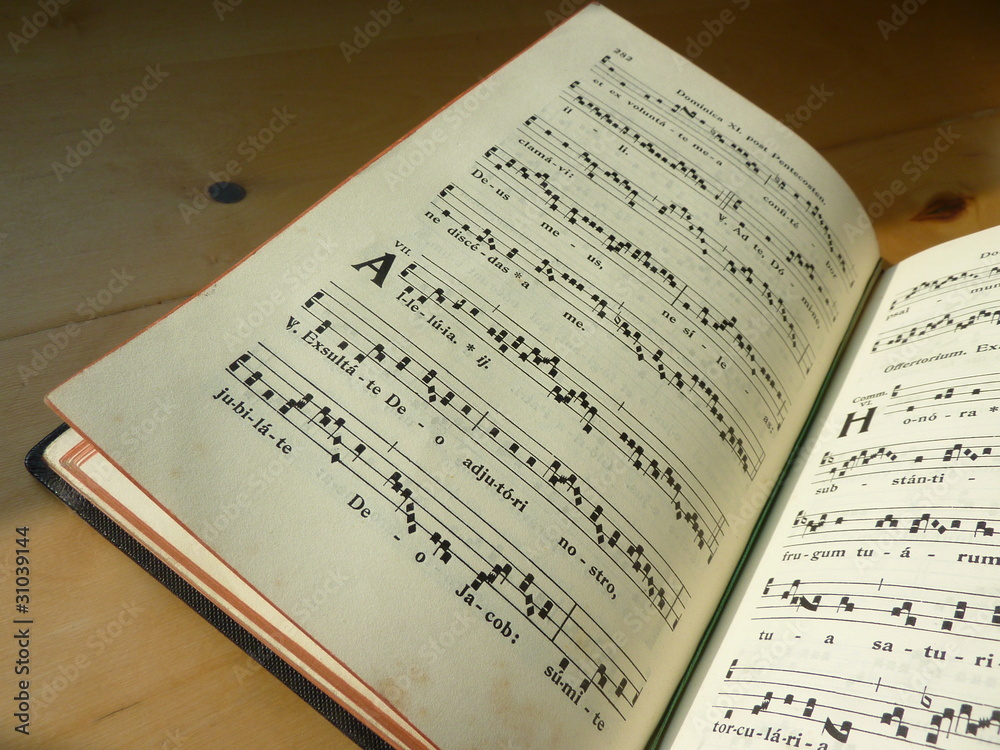 282 Dominica XI. post Pentecosten.
et ex voluntá - te me - a confi - té - bor
il - li. ℣. Ad te, Dó - mine,
clamá - vi:
De - us me - us, ne si - le - as,
ne discé - das * a me.
VII.
Al-le - lú-ia. * ij.
℣. Exsultá - te De - o adju-tó-ri no - stro,
ju-bi-lá-te De - o Ja-cob: sú-mi-te
Do
psal - mum
Offertorium. Ex
Comm.
VI.
Ho-nó - ra *
sub - stán-ti -
fru-gum tu - á - rum
tu - a sa - tu - ri
tor-cu-lá-ri-a
Adobe Stock | #31039144